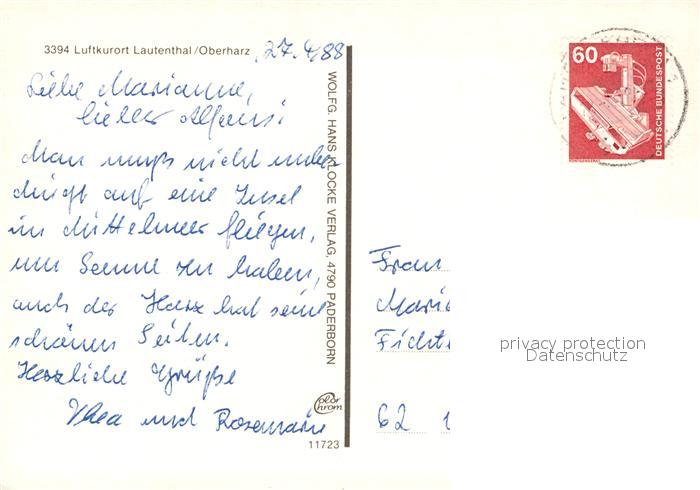 3394 Luftkurort Lautenthal/Oberharz
27.4.88
Liebe Marianne,
lieber Alfons!
Man muß nicht unbe-
dingt auf eine Insel
im Mittelmeer fliegen,
um Sonne zu haben,
auch der Harz hat seine
schönen Seiten.
Herzliche Grüße
Thea und Rosemarie
WOLFG. HANS KLOCKE VERLAG, 4790 PADERBORN
color
chrom
11723
60
DEUTSCHE BUNDESPOST
RÖNTGENGERÄT
Frau
Maria
Fichte
62
privacy protection
Datenschutz